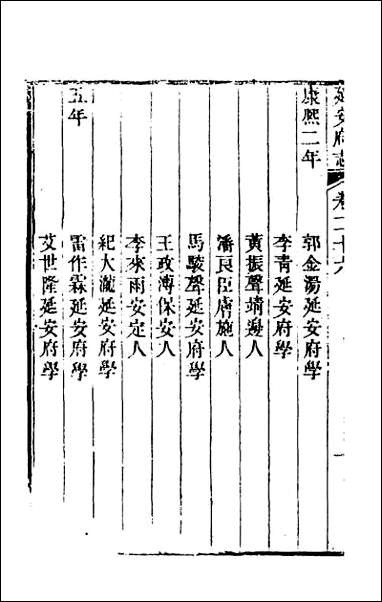 延安府志 卷二十六
康熙二年 郭金湯延安府學
李青延安府學
黃振聲靖邊人
潘良臣膚施人
馬駿聲延安府學
王政溥保安人
李來雨安定人
紀大瀧延安府學
五年 雷作霖延安府學
艾世隆延安府學